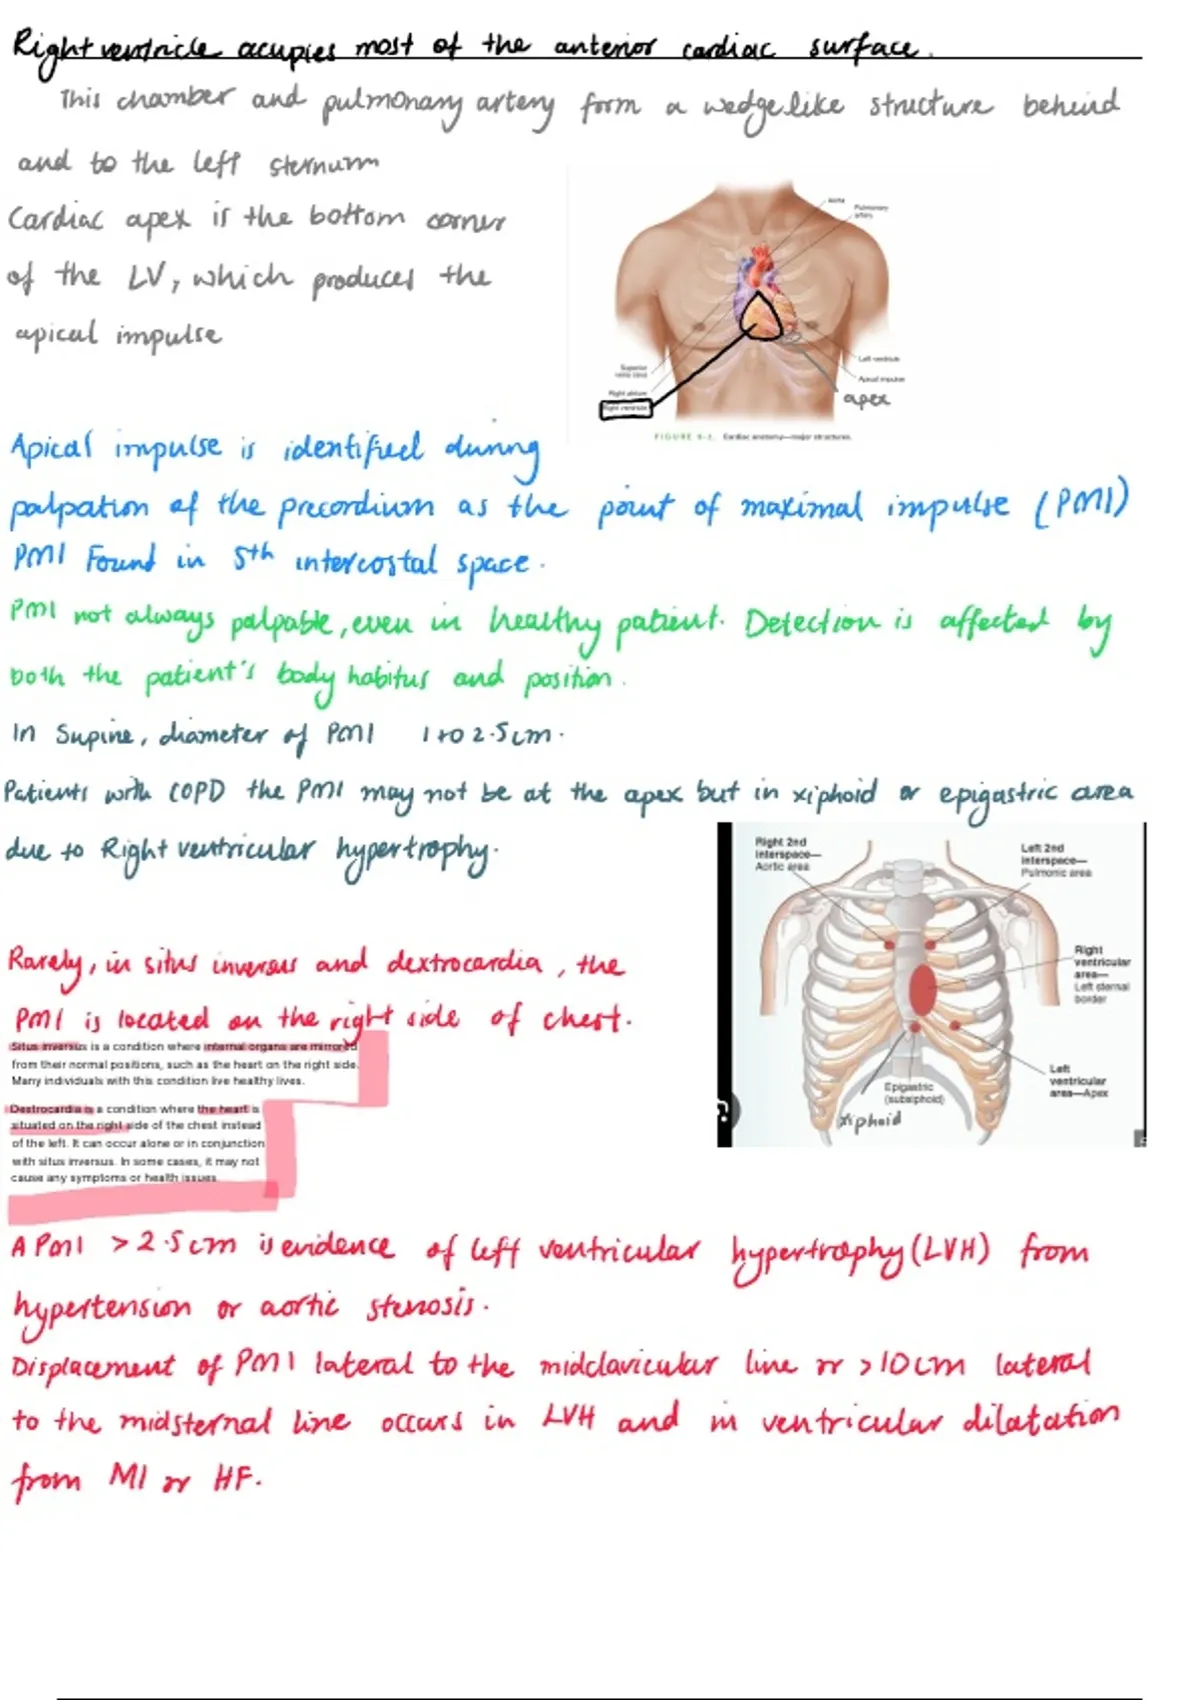 Right ventricle acupies most of the anterior cardiac surface.
This chamber and pulmonary artery form a wedgelike structure behind
and to the left sternum
Cardiac apex is the bottom corner
of the LV, which produces the
apical impulse
Aorta
Pulmonary
artery
Superior
vena cava
Right atrium
Right ventricle
Left ventricle
Apical impulse
apex
FIGURE 9-2. Cardiac anatomy—major structures.
Apical impulse is identified during
palpation of the precordium as the point of maximal impulse (PMI)
PMI Found in 5th intercostal space.
PMI not always palpable, even in healthy patient. Detection is affected by
both the patient's body habitus and position.
In supine, diameter of PMI 1 to 2.5cm.
Patients with COPD the PMI may not be at the apex but in xiphoid or epigastric area
due to Right ventricular hypertrophy.
Right 2nd
interspace—
Aortic area
Left 2nd
interspace—
Pulmonic area
Right
ventricular
area—
Left sternal
border
Left
ventricular
area—Apex
Epigastric
(subxiphoid)
xiphoid
Rarely, in situs inversus and dextrocardia, the
PMI is located on the right side of chest.
Situs inversus is a condition where internal organs are mirrored
from their normal positions, such as the heart on the right side.
Many individuals with this condition live healthy lives.
Dextrocardia is a condition where the heart is
situated on the right side of the chest instead
of the left. It can occur alone or in conjunction
with situs inversus. In some cases, it may not
cause any symptoms or health issues.
A PMI >2.5cm is evidence of left ventricular hypertrophy (LVH) from
hypertension or aortic stenosis.
Displacement of PMI lateral to the midclavicular line or >10cm lateral
to the midsternal line occurs in LVH and in ventricular dilatation
from MI or HF.